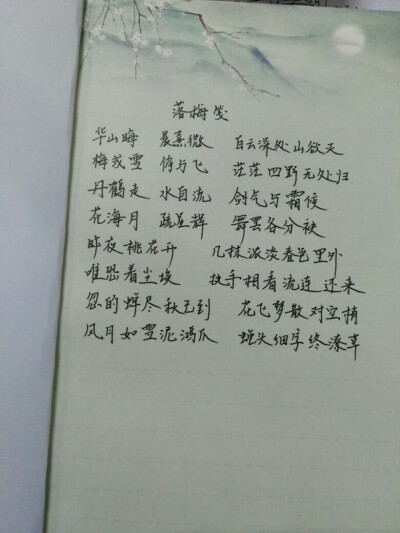 落梅笺
华山晦 晨熹微 白云深处山欲天
梅或雪 俦与飞 茫茫四野无处归
丹鹤走 水自流 剑气与霜侯
花海月 疏星辉 舞罢各分袂
昨夜桃花开 几抹浓淡春色里外
唯恐着尘埃 执手相看流连还来
忽的蝉尽秋已到 花飞梦散对空梢
风月如雪泥鸿爪 蝇头细字终潦草